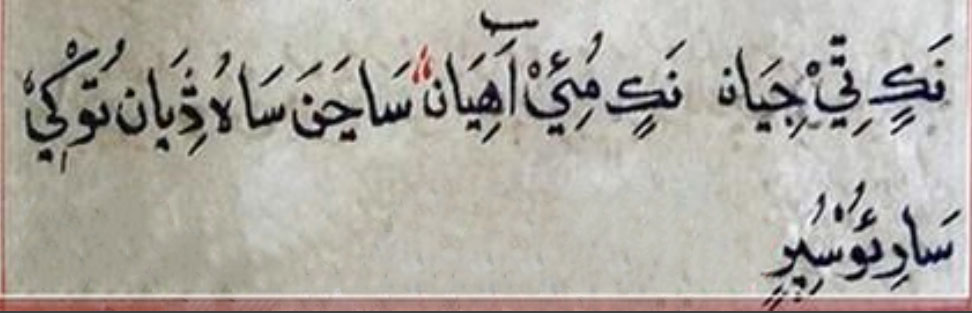 نَڪٍ تِيْ جِيَان نَڪٍ مُئِيْ آهِيَان سَاجَنَ سَاهُ ذِيَان تُوکِيْ
سَارِئُوْ سُپِرٍ